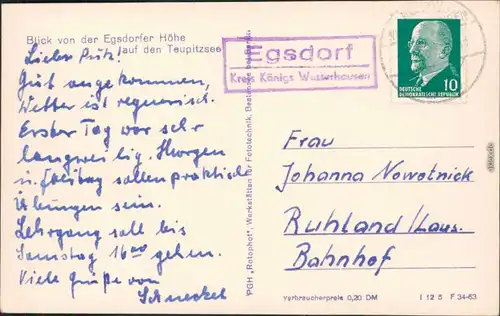 Blick von der Egsdorfer Höhe
auf den Teupitzsee
Lieber Putz!
Gut angekommen,
Wetter ist regnerisch.
Erster Tag war sehr
langweilig. Morgen
u. Freitag sollen praktische
Übungen sein.
Lehrgang soll bis
Samstag 16⁰⁰ gehen.
Viele Grüße von
Schneckel
PGH „Rotophot“, Werkstätten für Fototechnik, Bestensee
Egsdorf
Kreis Königs Wusterhausen
10
DEUTSCHE
DEMOKRATISCHE REPUBLIK
Frau
Johanna Nowotnick
Ruhland/Laus.
Bahnhof
Verbraucherpreis 0,20 DM
I 12 5 F 34-63